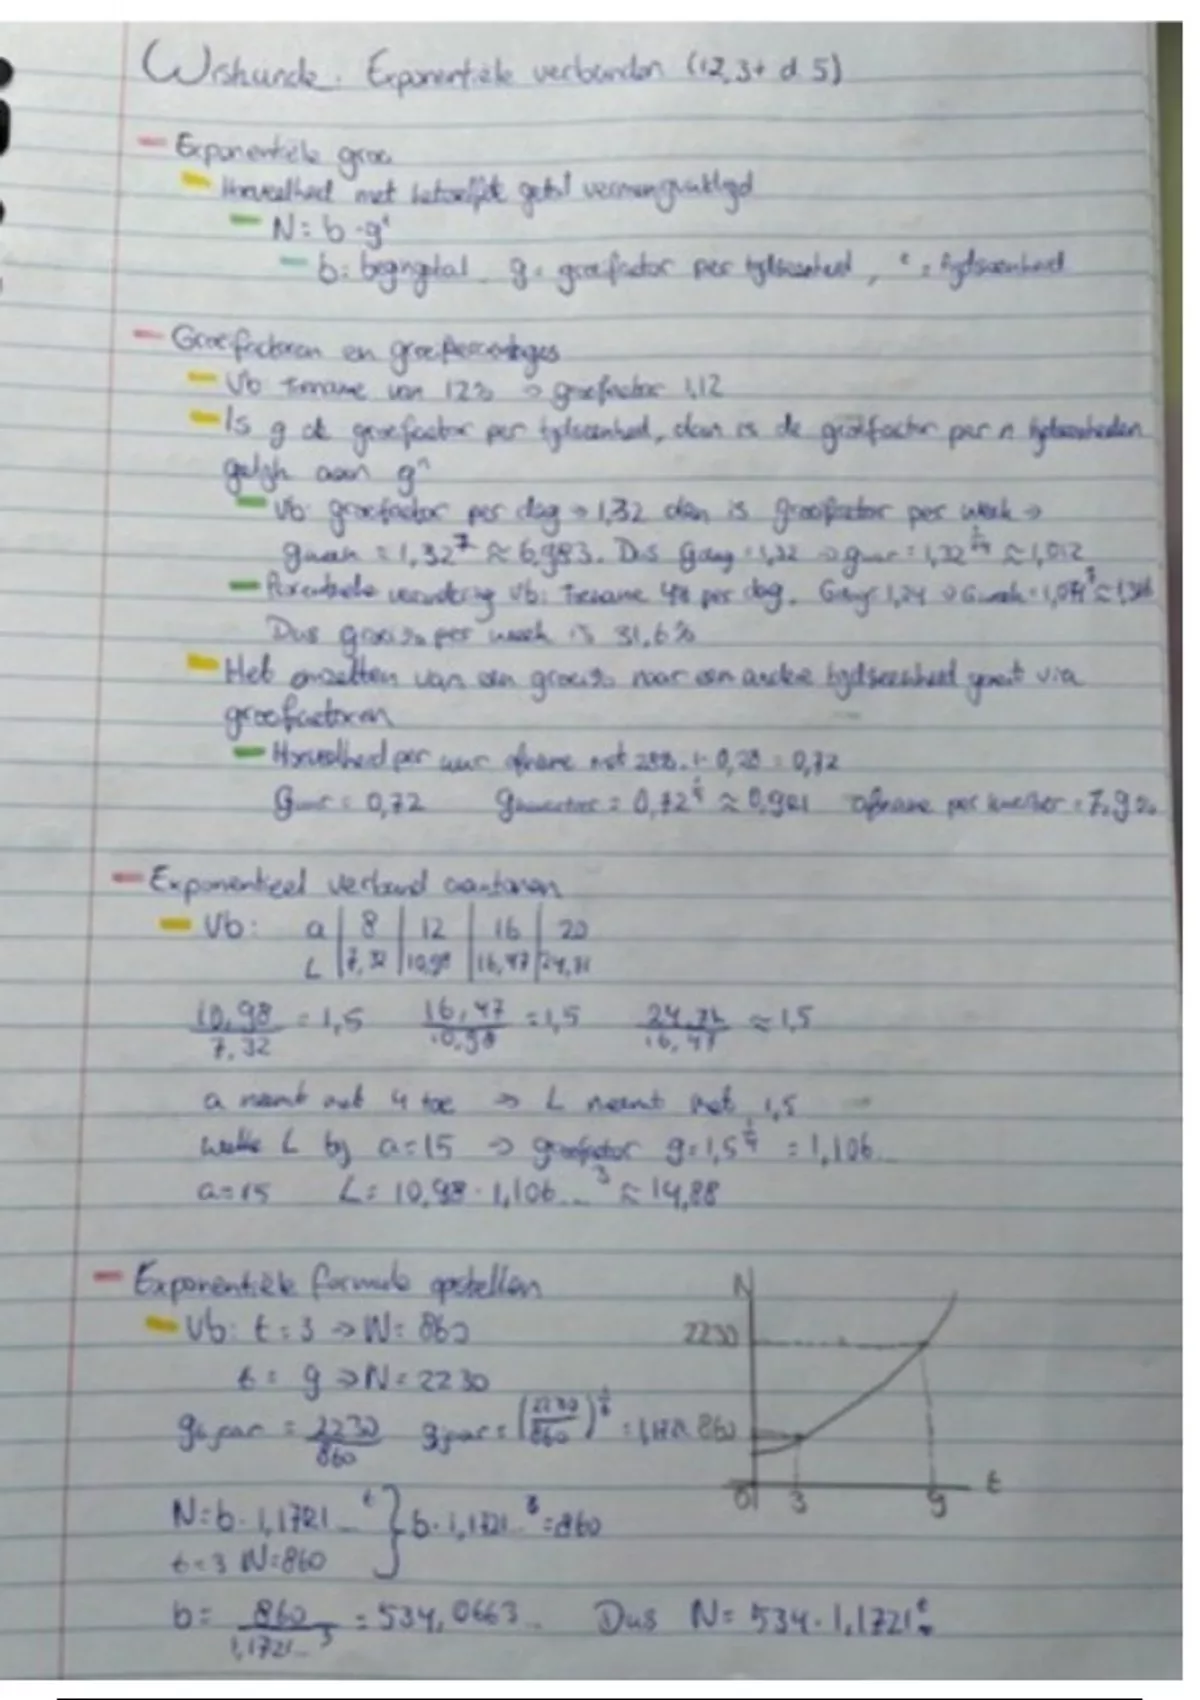 Wiskunde: Exponentiële verbanden (12,3+ d 5)
- Exponentiële groei
- Hoeveelheid met hetzelfde getal vermenigvuldigd
- N = b · g^t
- b = begingetal g = groeifactor per tijdseenheid, t = tijdseenheid
- Groeifactoren en groeipercentages
- Vb Toename van 12% → groeifactor 1,12
- Is g de groeifactor per tijdseenheid, dan is de groeifactor per n tijdseenheden
gelijk aan g^n
- Vb: groeifactor per dag → 1,32 dan is groeifactor per week →
gweek = 1,32^7 ≈ 6,983. Dus gdag = 1,32 → guur = 1,32^1/24 ≈ 1,012
- verandering Vb: Toename 4% per dag. Gdag = 1,04 → Gweek = 1,04^7 ≈ 1,316
Dus groei% per week is 31,6%
- Het omzetten van een groei% naar een andere tijdseenheid gaat via
groeifactoren
- Hoeveelheid per uur afname met 28%. 1 - 0,28 = 0,72
guur = 0,72 gkwartier = 0,72^1/4 ≈ 0,921 afname per kwartier = 7,9%
- Exponentieel verband aantonen
- Vb: a | 8 | 12 | 16 | 20
L | 7,32 | 10,98 | 16,47 | 24,71
10,98/7,32 = 1,5 16,47/10,98 = 1,5 24,71/16,47 ≈ 1,5
a neemt met 4 toe → L neemt met 1,5
welke L bij a = 15 → groeifactor g = 1,5^1/4 = 1,106...
a = 15 L = 10,98 · 1,106...^3 ≈ 14,88
- Exponentiële formule opstellen
- Vb: t = 3 → N = 860
t = 9 → N = 2230
g6 jaar = 2230/860 gjaar = (2230/860)^1/6 = 1,172
N = b · 1,1721...^t } b · 1,1721...^3 = 860
t = 3 N = 860
b = 860/1,1721...^3 = 534,0663... Dus N = 534 · 1,1721^t
N
2230
860
0 3 9 t